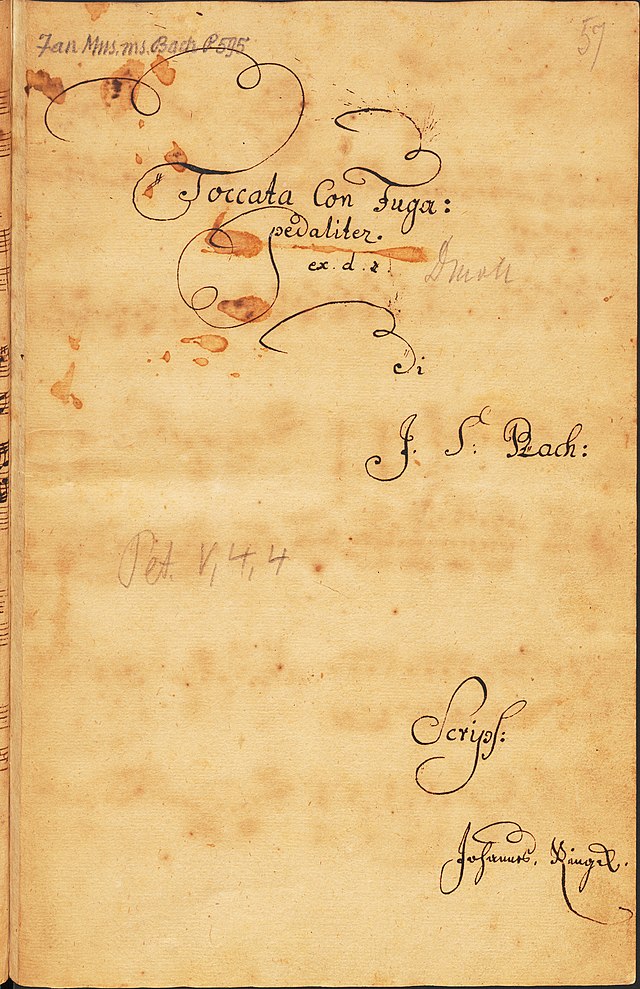 Fan Mus. ms. Bach P 595
59
Toccata Con Fuga:
pedaliter.
ex. d. #.
D moll
di
J. S. Bach:
Pet. V, 4, 4
Scrips:
Johannes. Ringk.